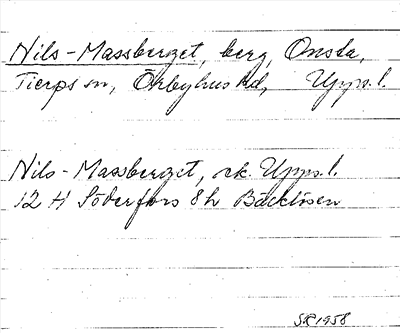 Nils-Massberget, berg, Onsta,
Tierps sn, Örbyhus hd, Upps.l.
Nils-Massberget, rk. Upps.l.
12 H Söderfors 8h Bäcklösen
SR 1958